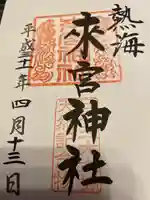 熱海
來宮神社
平成年四月十三日